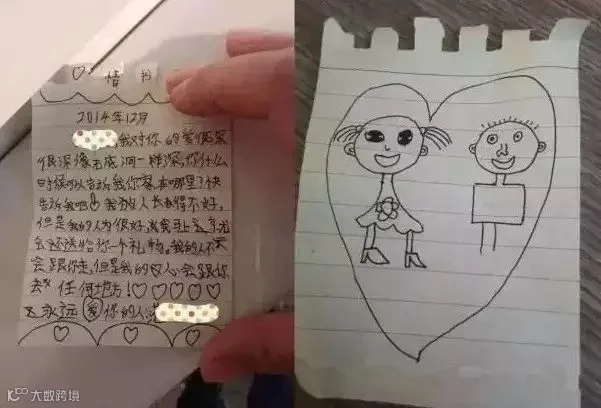 情书
2014年12月
我对你的爱很深
很深像无底洞一样深,你什么
时候可以告诉我你家本哪里了快
告诉我吧!我的人长得不好,
但是我的人为很好,我马上
会还送给你一个礼物,我的人不
会跟你走,但是我的女人会跟你
去任何地方!♡♡♡♡♡
永远爱你的人
大数跨境